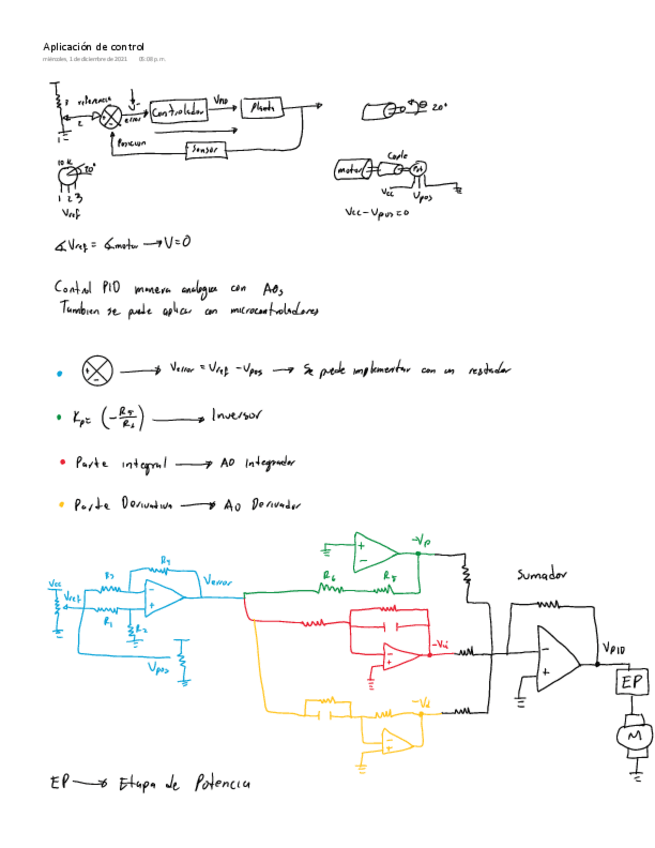 Aplicación de control
miércoles, 1 de diciembre de 2021 05:08 p. m.
referencia
3
2
1
+
-
error
Controlador
VPID
Planta
Posicion
Sensor
10 K
20°
1 2 3
Vref
θ 20°
motor
Cople
Pot
Vcc
Vpos
Vcc - Vpos = 0
∡Vref = ∡motor → V=0
Control PID manera analogica con AOs
Tambien se puede aplicar con microcontroladores
• + - → Verror = Vref - Vpos → Se puede implementar con un restador
• Kp= (- R5/R6) → Inversor
• Parte integral → AO Integrador
• Parte Derivativa → AO Derivador
Vcc
Vref
R3
R4
R1
R2
Verror
Vpos
R6
R5
-Vp
-Vi
-Vd
Sumador
VPID
EP
M
EP → Etapa de Potencia